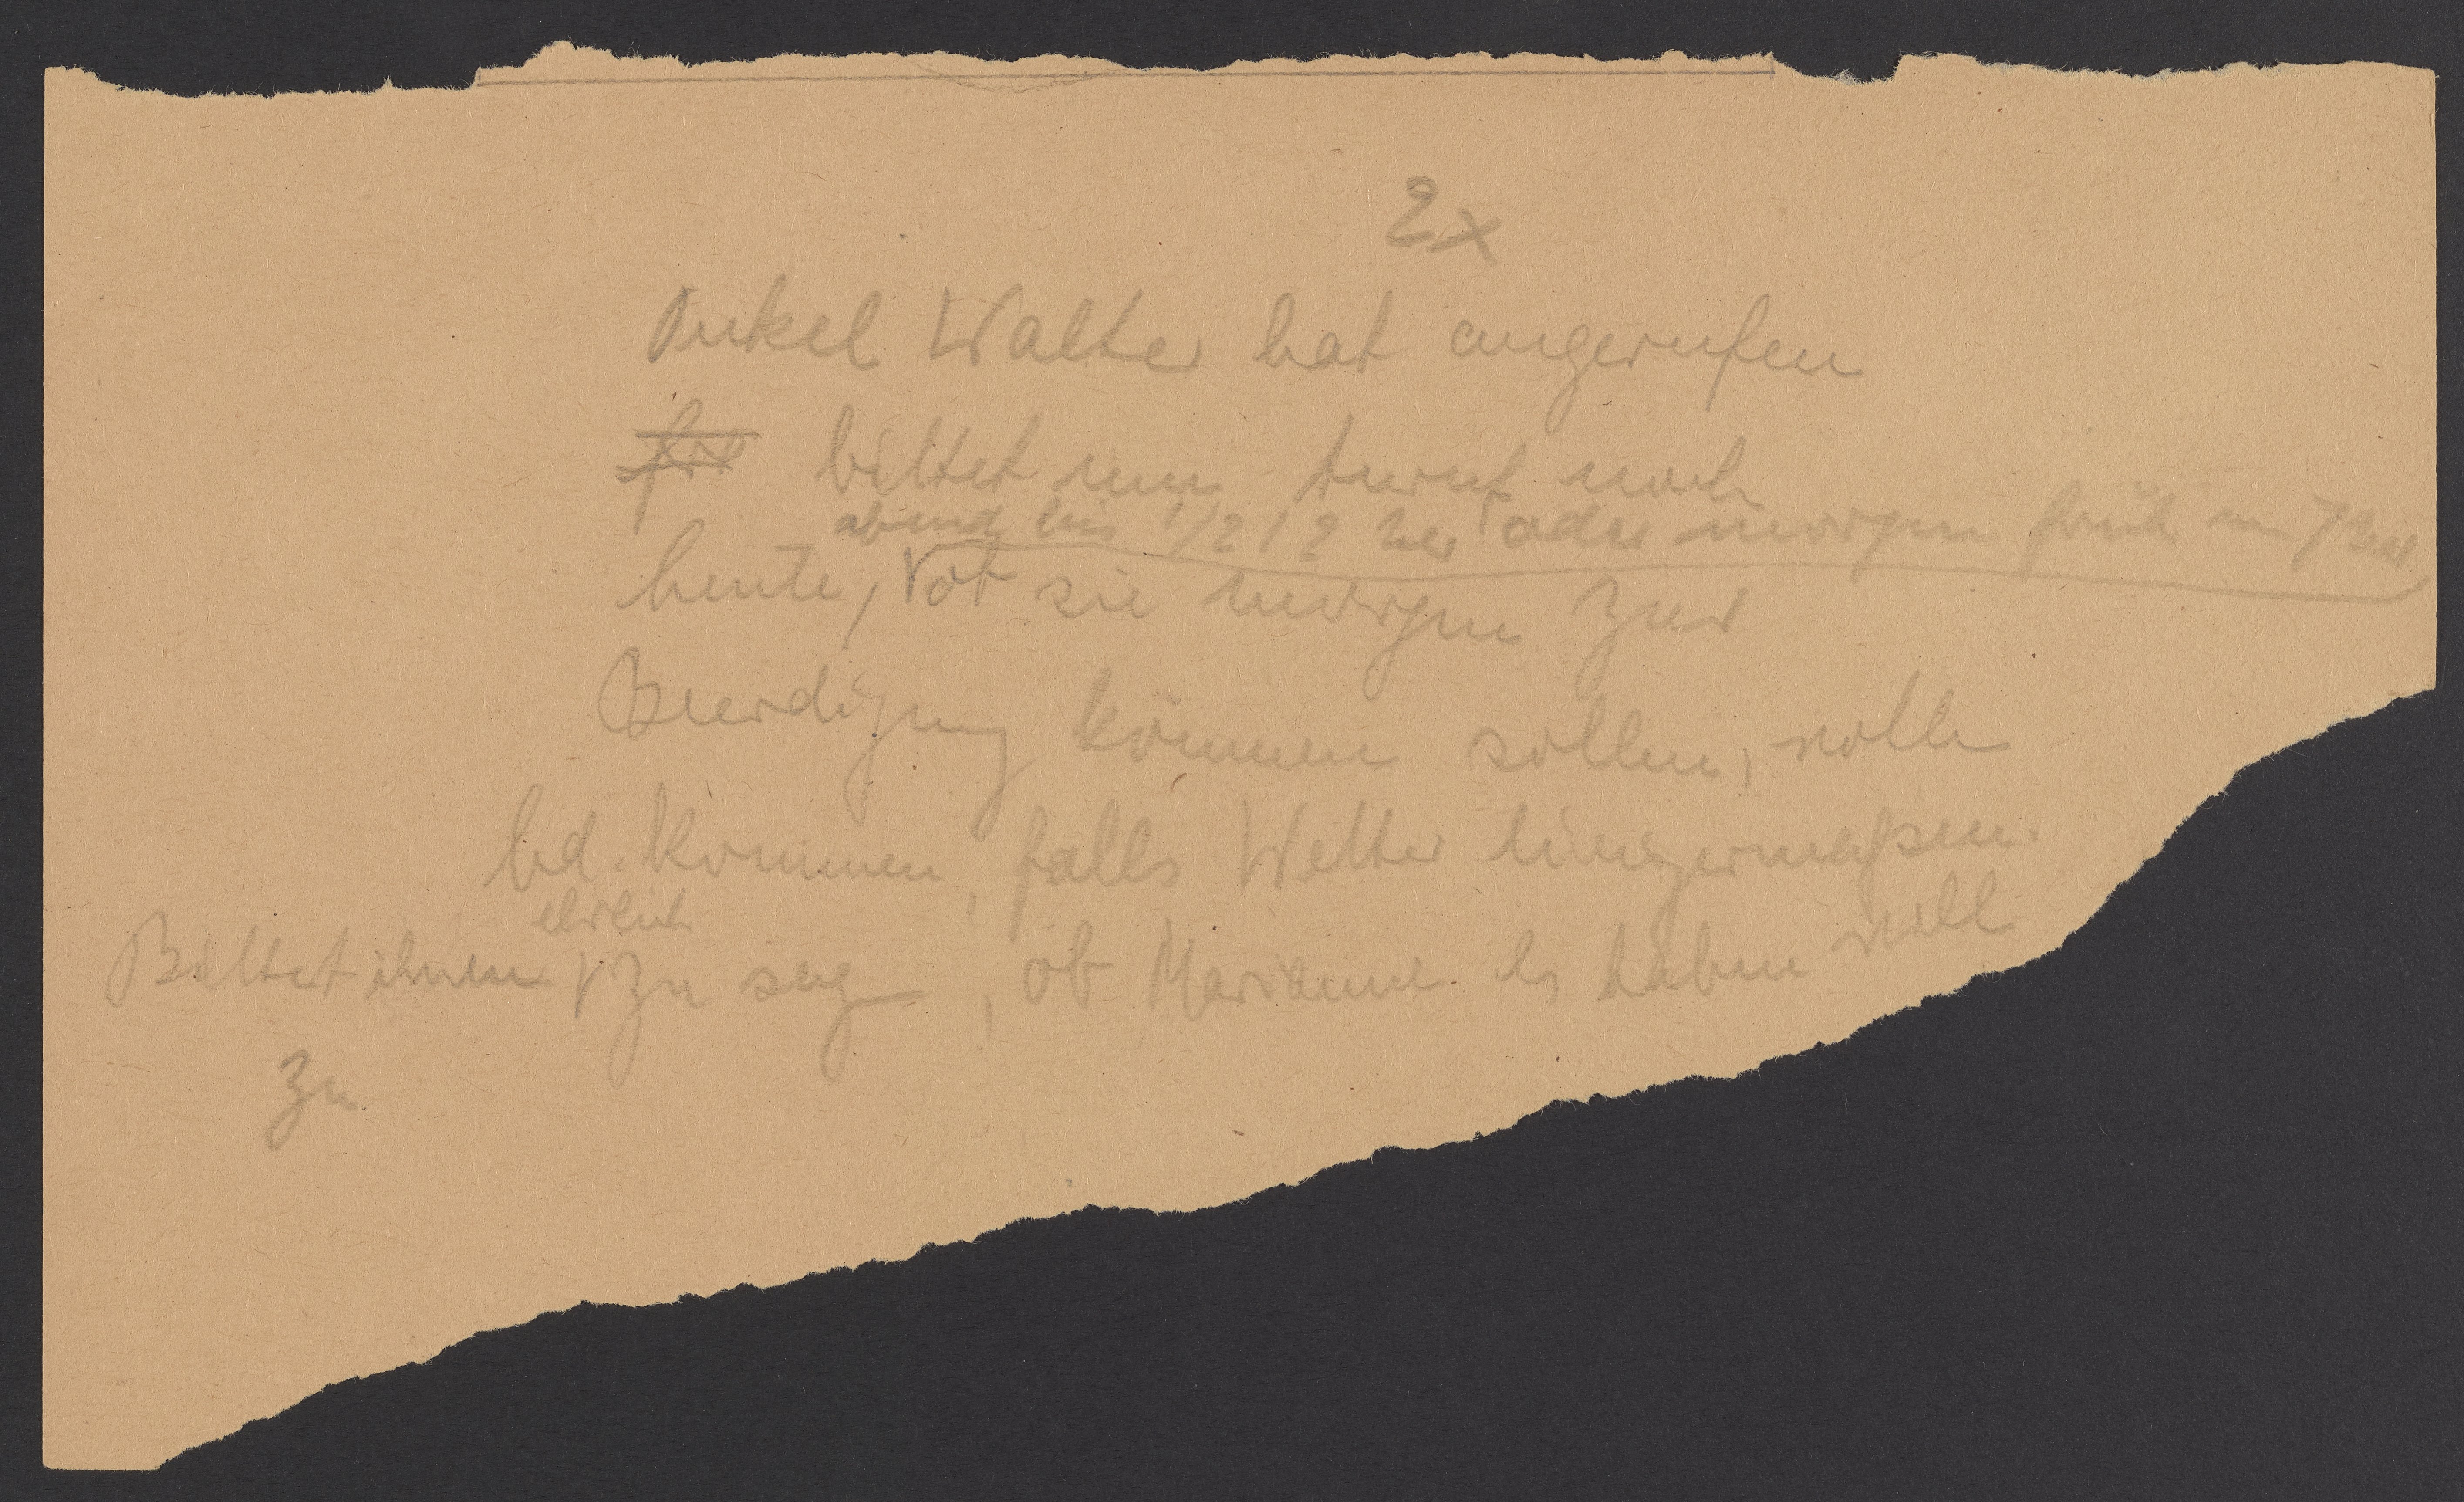 2x
Onkel Walter hat angerufen
bittet um Anruf noch
abend bis 1/2 12 Uhr oder morgen früh um 7 Uhr
heute, ob sie morgen zur
Beerdigung kommen sollen, wolle
bd. kommen, falls Wetter einigermaßen.
ehrlich
Bittet ihnen zu sag, ob Marianne es haben will
zu